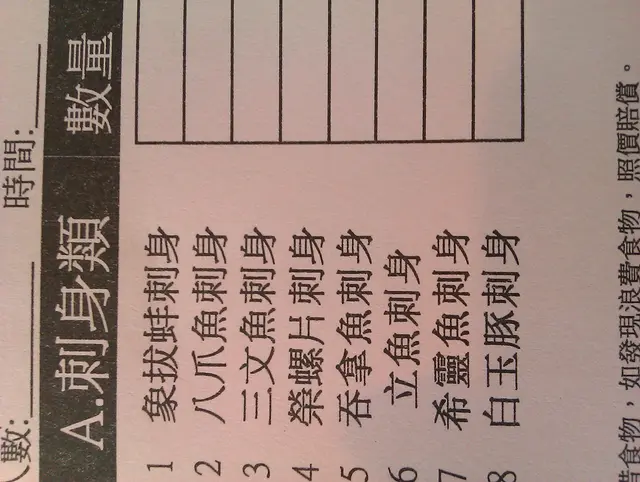 數: 時間:
A.刺身類 數量
1 象拔蚌刺身
2 八爪魚刺身
3 三文魚刺身
4 榮螺片刺身
5 吞拿魚刺身
6 立魚刺身
7 希靈魚刺身
8 白玉豚刺身
惜食物，如發現浪費食物，照價賠償。